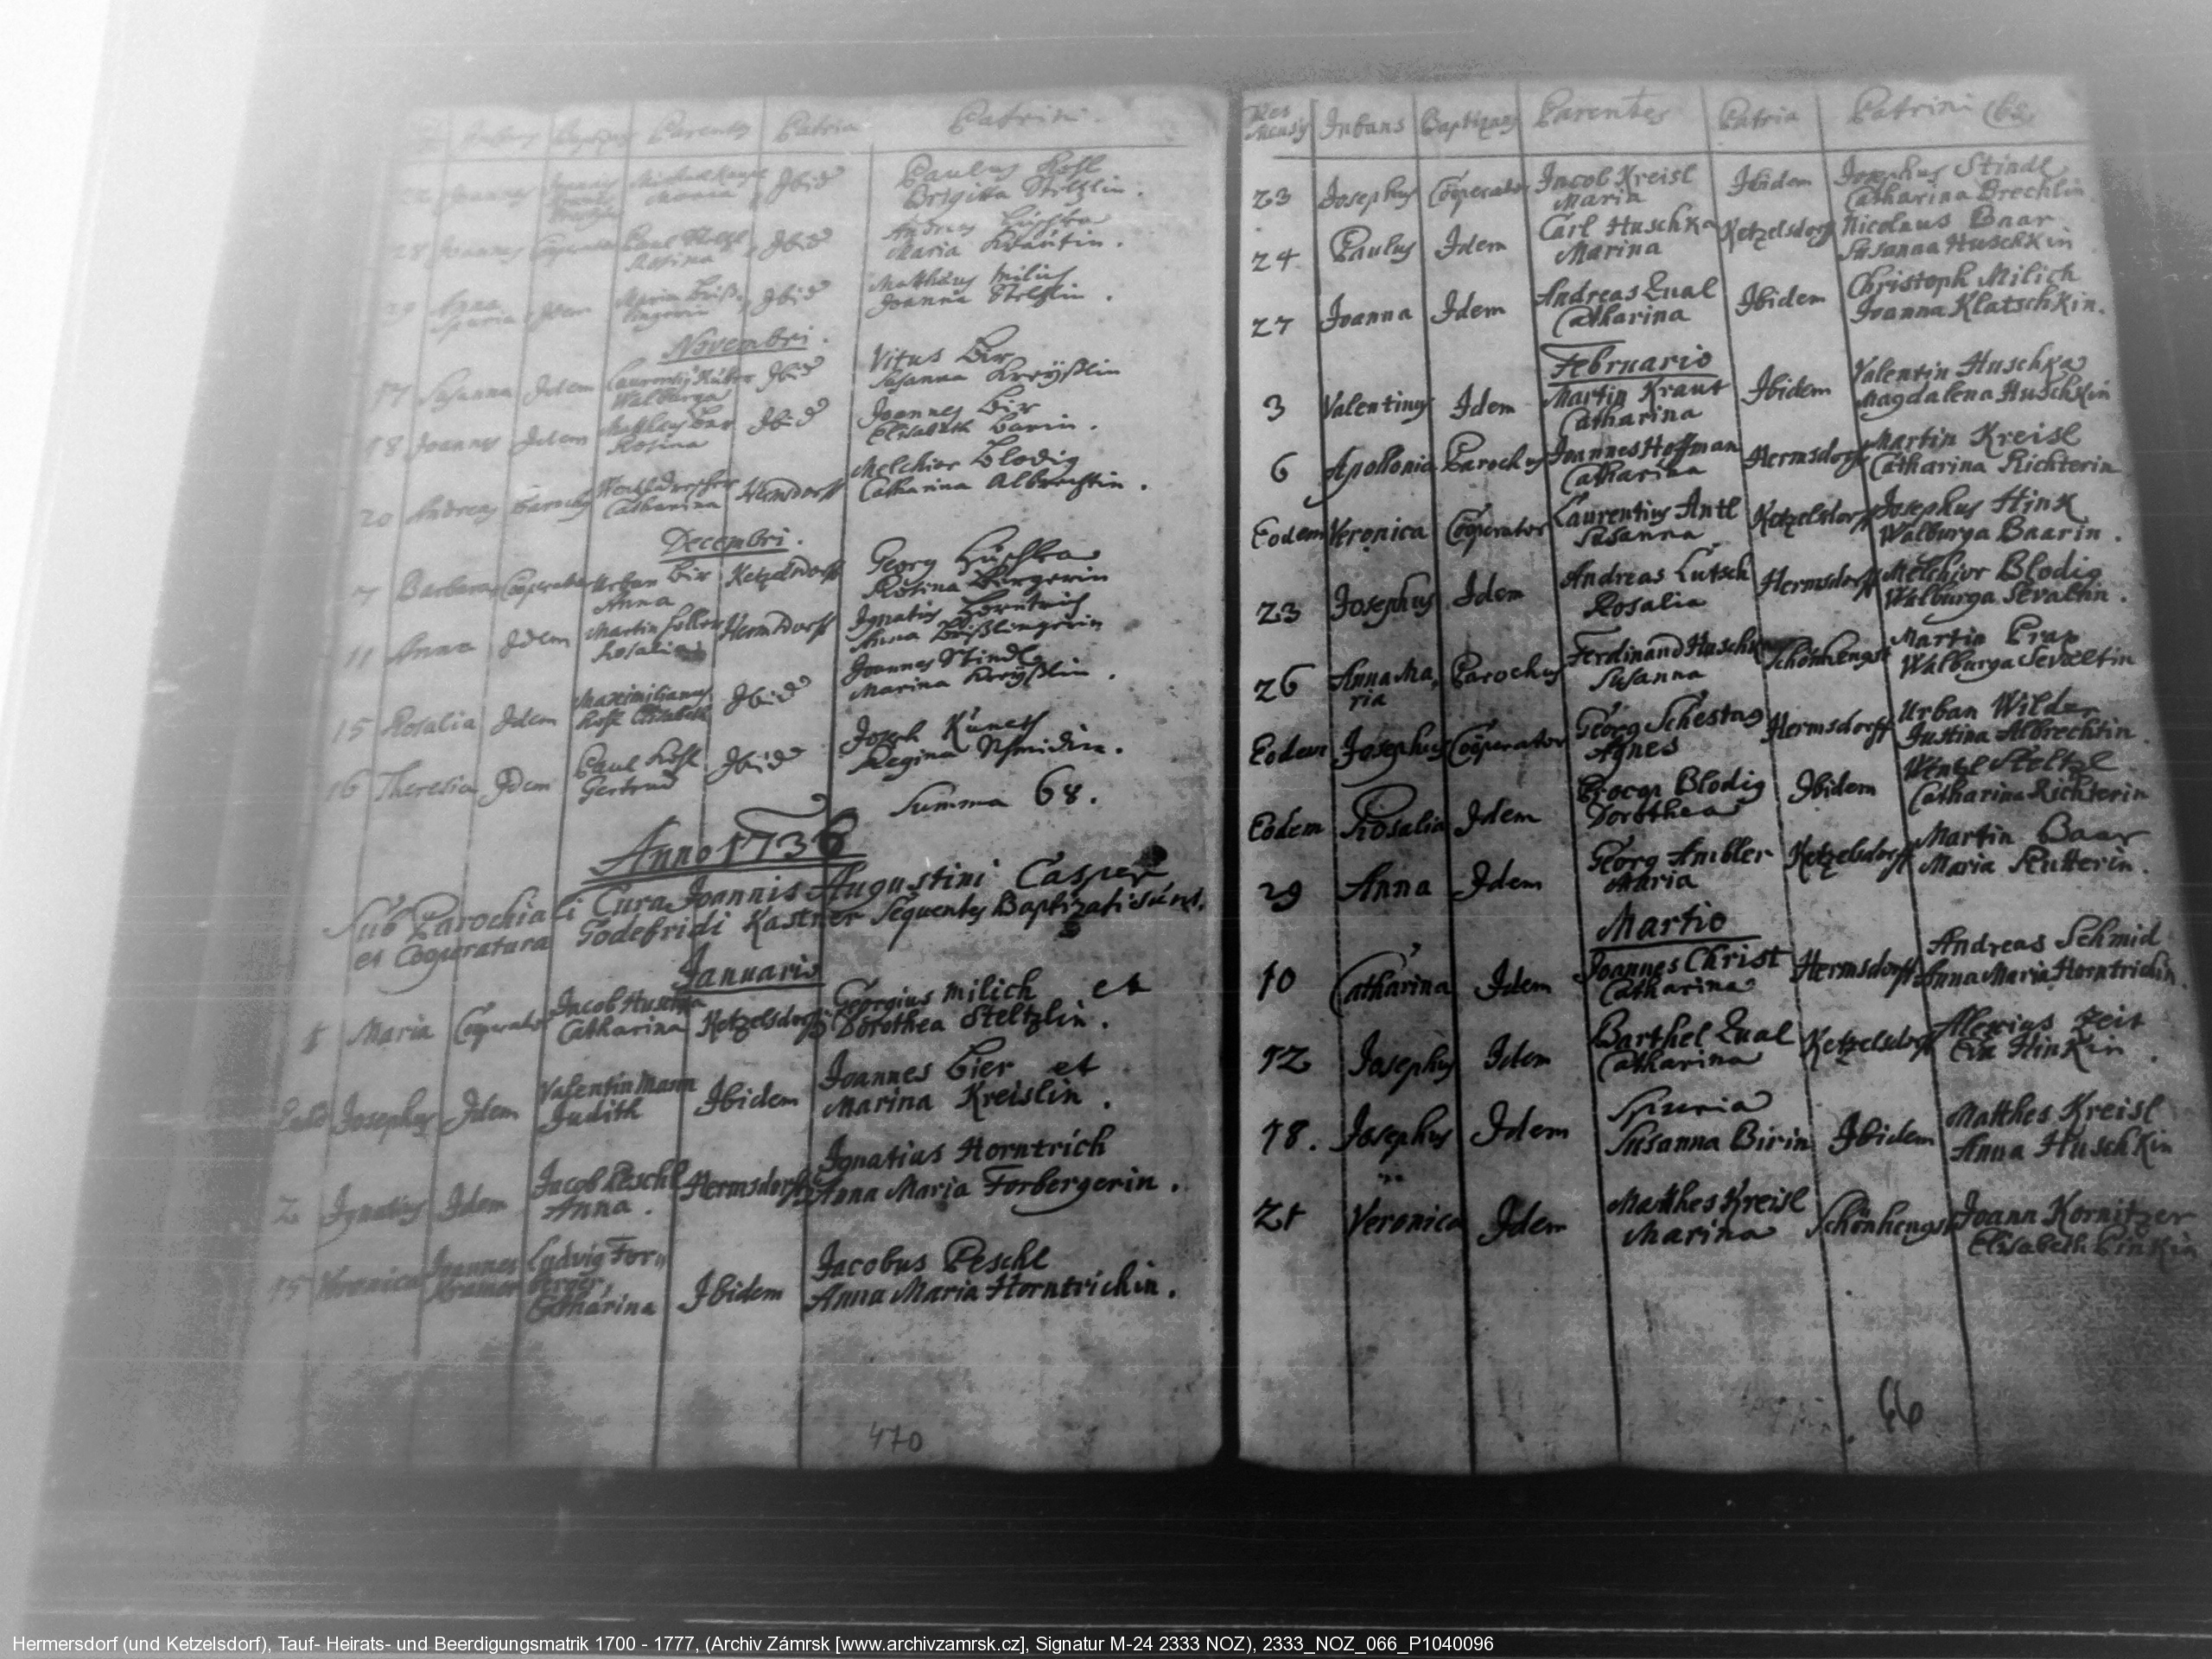 Parentes Patria Patrini.
Joannes Ibid Paulus
Maria Brigitta Steltzlin.
28 Joannes Cooperator Paul Ibid Andreas
Rosina Maria
29 Anna Idem Maria Ibid Matthäus Milich
Spuria Joanna
Novembri.
17 Susanna Idem Ibid Vitus Bir
Walburga Susanna Kreyßlin
18 Joannes Idem Ibid Joannes Bir
Rosina Elisabeth Barin.
20 Andreas Parochus Hermsdorff Melchior Blodig
Catharina Catharina Albrechtin.
Decembri.
7 Barbara Cooperator Urban Bir Ketzelsdorff Georg Huschka
Anna Rosina Bergerin
11 Anna Idem Martin Hermsdorff Ignatius Horntrich
Rosalia Anna
15 Rosalia Idem Maximilianus Ibid Joannes Stindl
Elisabeth Marina Kreyßlin.
16 Theresia Idem Paul Ibid Joseph
Gertrud Regina Schmidin.
Summa 68.
Anno 1736
Sub Parochiali Cura Joannis Augustini Casper
et Cooperatura Godefridi Kastner Sequentes Baptizati sunt.
Januario
1 Maria Cooperator Jacob Huschka Ketzelsdorff Georgius Milich et
Catharina Dorothea Steltzlin.
Josephus Idem Valentin Mann Ibidem Joannes Bier et
Judith Marina Kreislin.
2 Ignatius Idem Jacob Peschl Hermsdorff Ignatius Horntrich
Anna. Anna Maria Forbergerin.
15 Veronica Joannes Ludvig For,, Ibidem Jacobus Peschl
Kramer berger, Catharina Anna Maria Horntrichin.
470
Mensis Infans Baptizans Parentes Patria Patrini
23 Josephus Cooperator Jacob Kreisl Ibidem Josephus Stindl
Maria Catharina Brechlin
24 Paulus Idem Carl Huschka Ketzelsdorff Nicolaus Baar
Marina Susanna Huschkin
27 Joanna Idem Andreas Zual Ibidem Christoph Milich
Catharina Joanna Klatschkin.
Februario
3 Valentinus Idem Martin Kraut Ibidem Valentin Huschka
Catharina Magdalena Huschkin
6 Apollonia Parochus Joannes Hoffman Hermsdorff Martin Kreisl
Catharina Catharina Richterin
Eodem Veronica Cooperator Laurentius Antl Ketzelsdorff Josephus Hink
Susanna Walburga Baarin.
23 Josephus Idem Andreas Lutsch Hermsdorff Melchior Blodig
Rosalia Walburga Sevaltin.
26 Anna Ma, Parochus Ferdinand Huschka Schönhengst Martin Prax
ria Susanna Walburga Seveltin
Eodem Josephus Cooperator Georg Schestag Hermsdorff Urban Wilder
Agnes Justina Albrechtin
Eodem Rosalia Idem Procop Blodig Ibidem Wentzl Steltzl
Dorothea Catharina Richterin
29 Anna Idem Georg Ambler Ketzelsdorff Martin Baar
Maria Maria Kutterin.
Martio
10 Catharina Idem Joannes Christ Hermsdorff Andreas Schmid
Catharina Anna Maria Horntrichin.
12 Josephus Idem Barthel Zual Ketzelsdorff Alexius Zeit
Catharina Eva Hinkin.
18. Josephus Idem Spuria Ibidem Matthes Kreisl
Susanna Birin Anna Huschkin
21 Veronica Idem Matthes Kreisl Schönhengst Joann Kornitzer
Marina Elisabeth Pinkin
66
Hermersdorf (und Ketzelsdorf), Tauf- Heirats- und Beerdigungsmatrik 1700 - 1777, (Archiv Zámrsk [www.archivzamrsk.cz], Signatur M-24 2333 NOZ), 2333_NOZ_066_P1040096